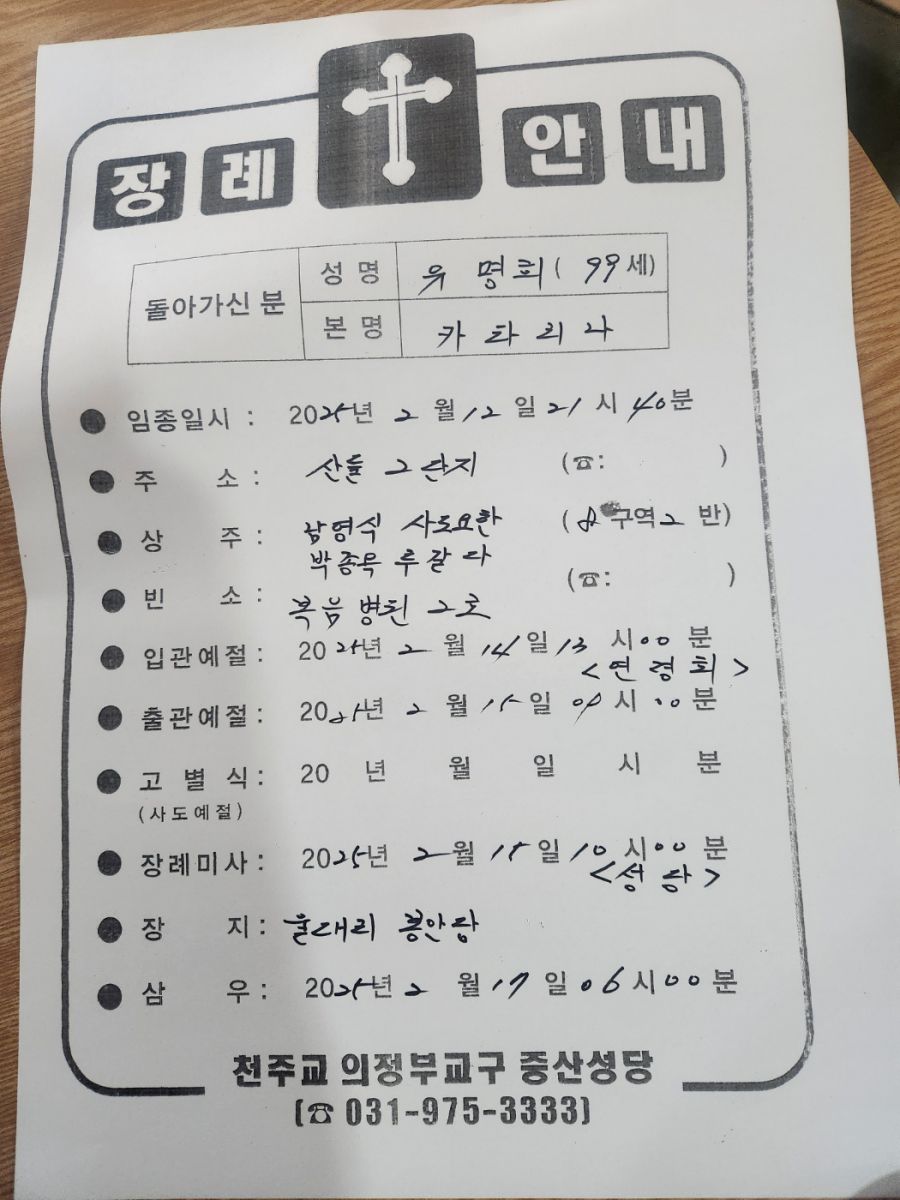 장례 안내
돌아가신 분
성 명 유명희( 99세)
본 명 카타리나
임종일시 : 2025년 2월 12일 21시 40분
주 소 : 산들 2단지 (☎: )
상 주 : 남영식 사도요한 (8구역 2반)
박종옥 루갈다 (☎: )
빈 소 : 복음병원 2호
입관예절 : 2025년 2월 14일 13시 00분
<연령회>
출관예절 : 2025년 2월 15일 09시 00분
고 별 식 : 20 년 월 일 시 분
(사도예절)
장례미사 : 2025년 2월 15일 10시 00분
<성당>
장 지 : 울대리 봉안당
삼 우 : 2025년 2월 17일 06시 00분
천주교 의정부교구 중산성당
(☎ 031-975-3333)